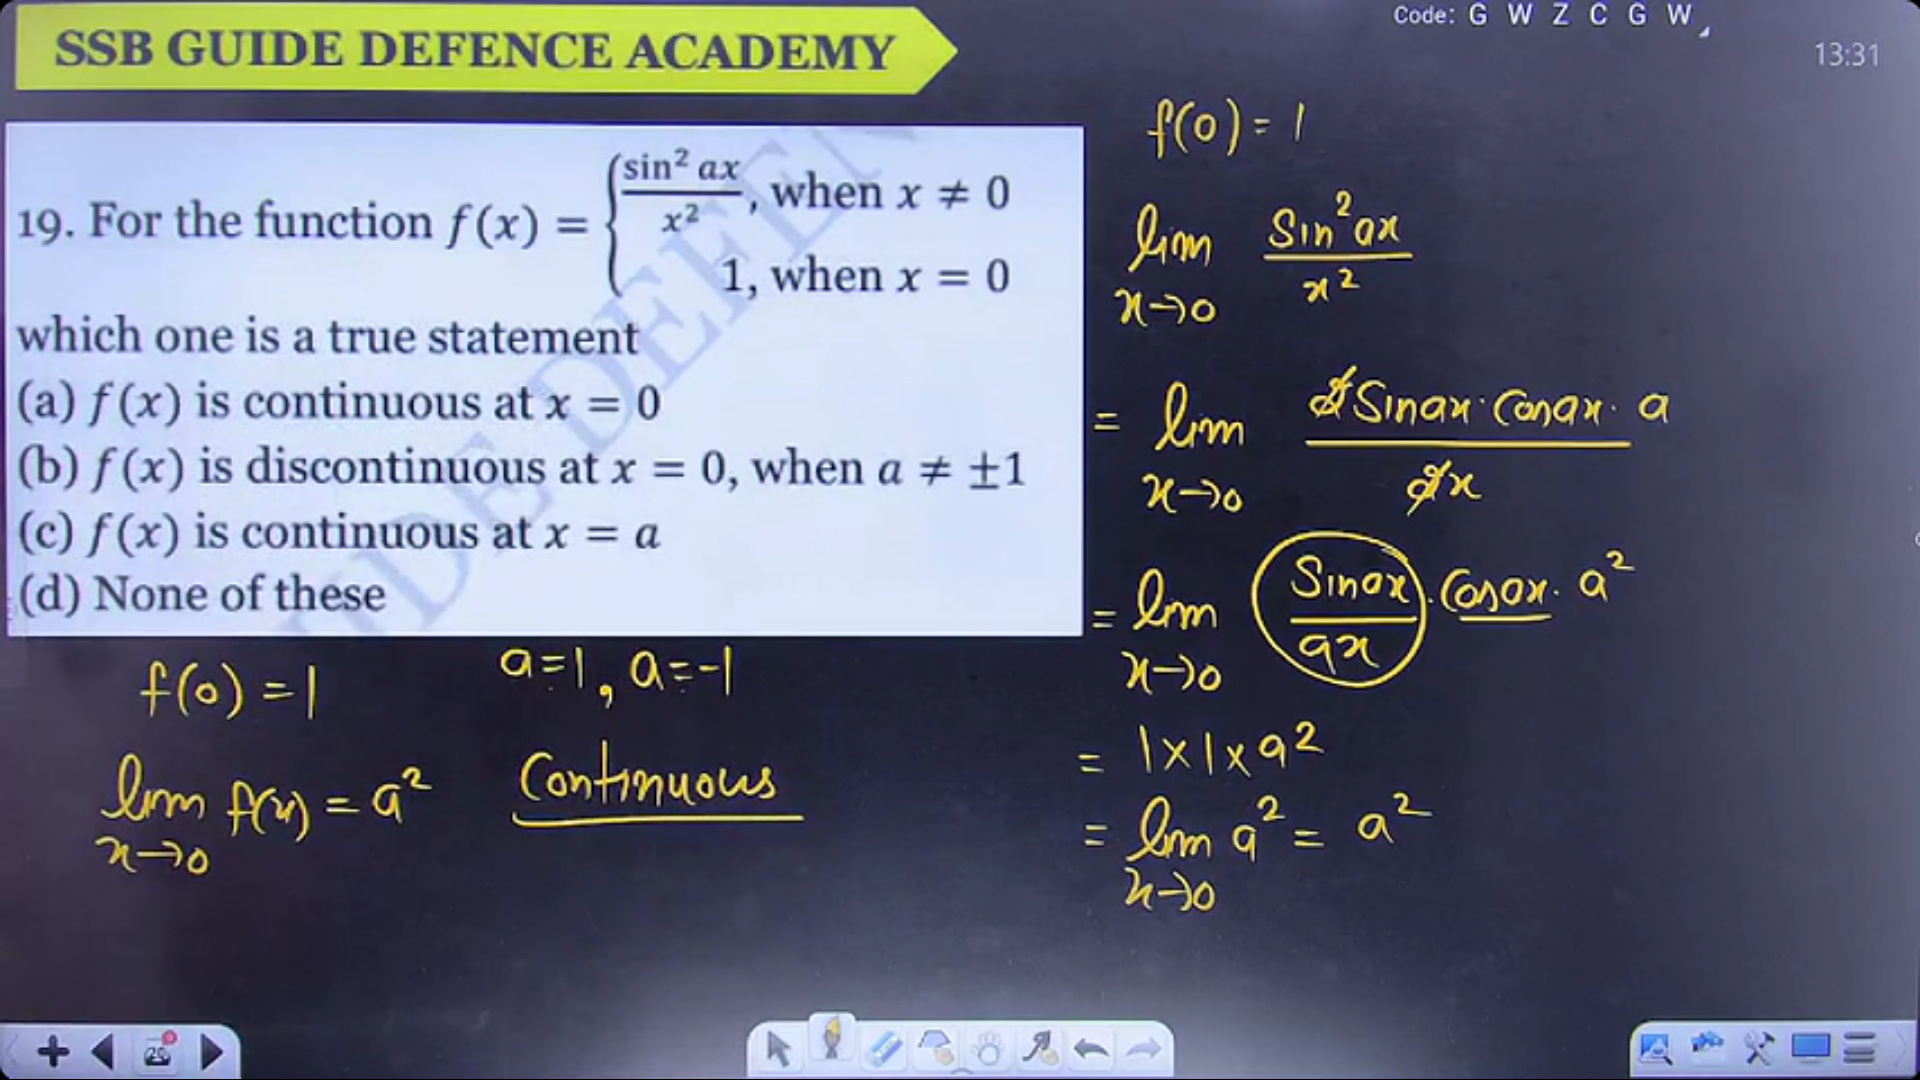 SSB GUIDE DEFENCE ACADEMY
Code: G W Z C G W
13:31
19. For the function f(x) = { sin² ax / x², when x ≠ 0
1, when x = 0
which one is a true statement
(a) f(x) is continuous at x = 0
(b) f(x) is discontinuous at x = 0, when a ≠ ±1
(c) f(x) is continuous at x = a
(d) None of these
f(0) = 1
a=1, a=-1
lim x→0 f(x) = a²
Continuous
f(0) = 1
lim x→0 Sin²ax / x²
= lim x→0 2Sinax · Cosax · a / 2x
= lim x→0 Sinax / ax · Cosax · a²
= 1×1×a²
= lim x→0 a² = a²